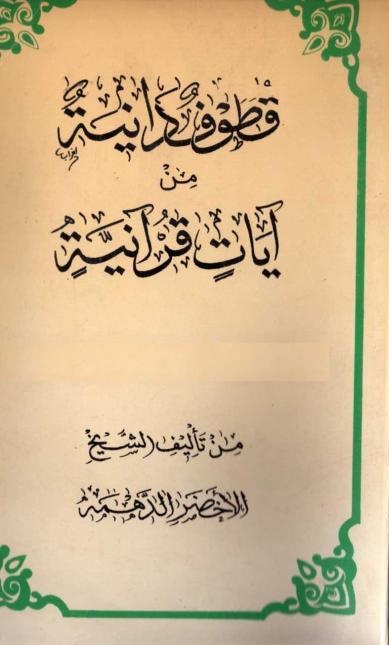 قُطُوفٌ دَانِيَةٌ
مِنْ
آيَاتٍ قُرْآنِيَّةٍ
مِنْ تَأليف الشَّيْخ
الأخضَر الدَّهْمَة